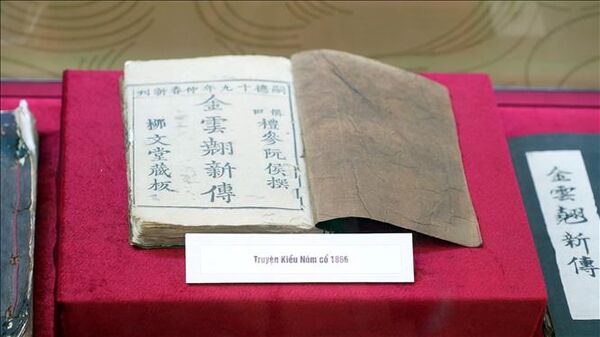 嗣德十九年仲春新刊
仙田
禮參阮侯撰
金雲翹新傳
柳文堂藏板
Truyện Kiều Nôm cổ 1866
金雲翹新傳